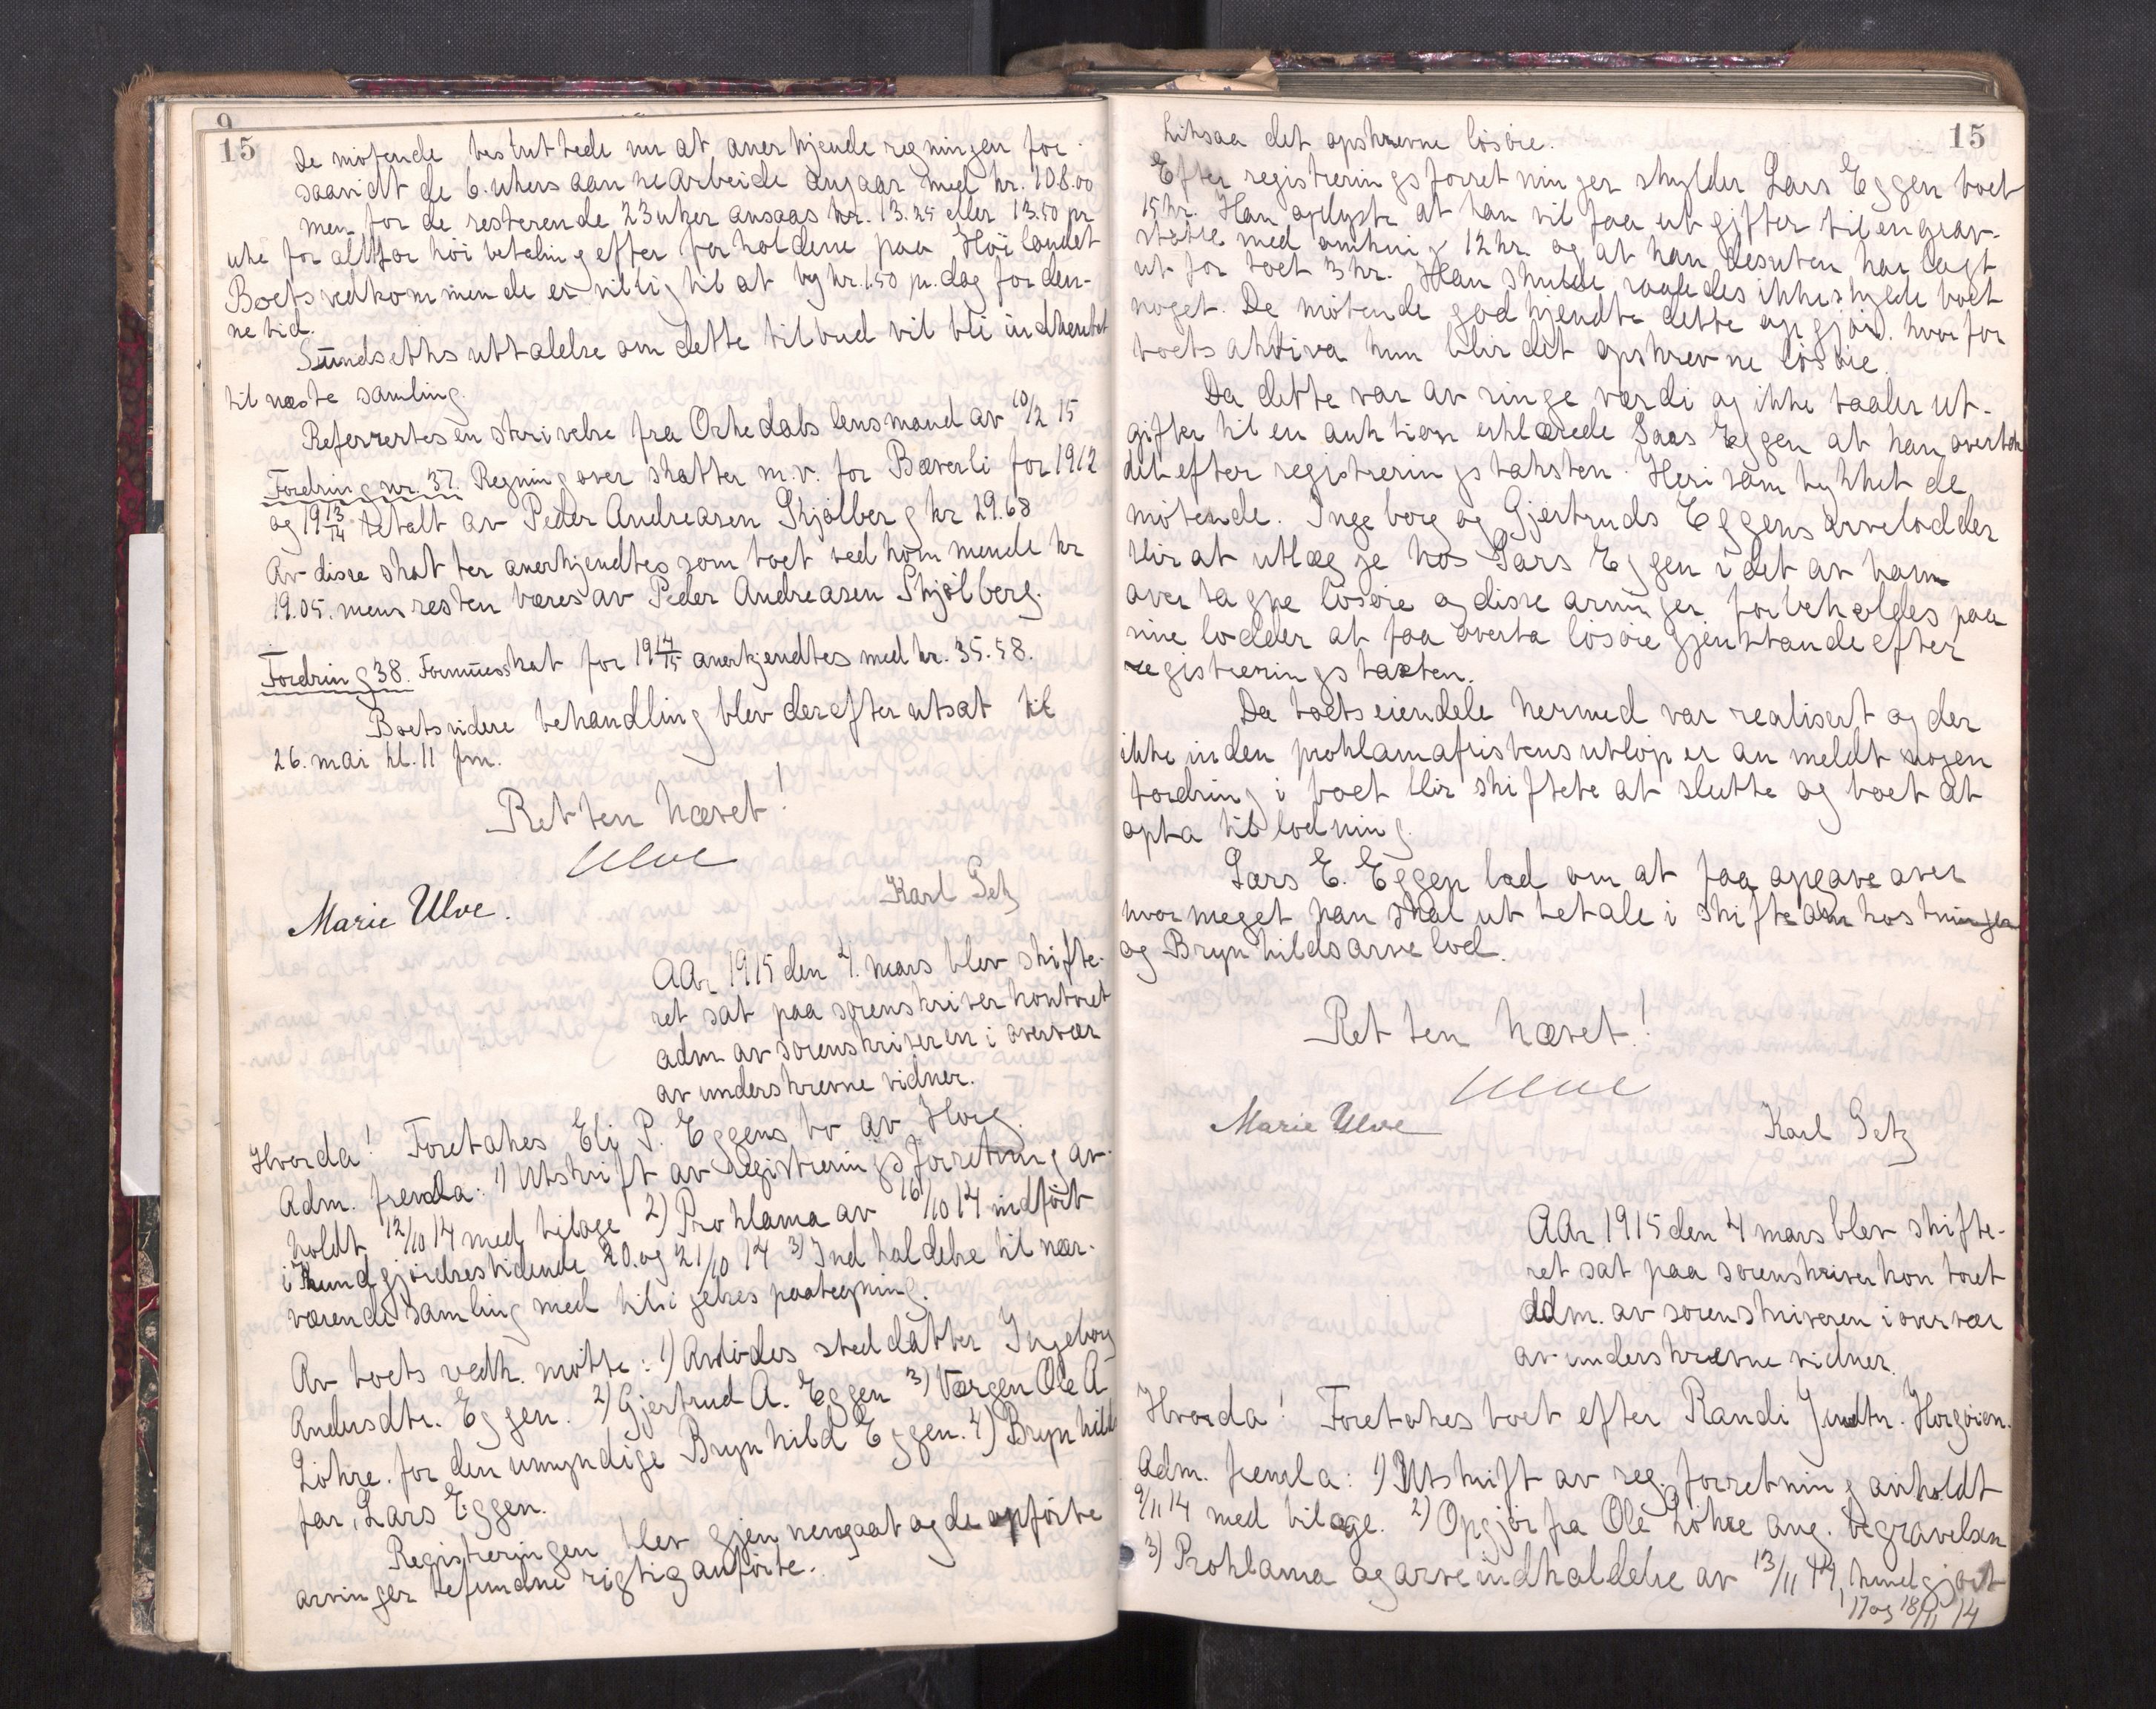 9
15
De møtende besluttede nu at anerkjende regningen for-
saavidt de 6. ukers aan ne arbeide angaar med kr. 108.00
men for de resterende 23 uker ansaas kr. 13.25 eller 13.50 pr
uke for altfor høi betaling efter forholdene paa Høilandet
Boets vedkommende er villig til at by kr. 1.50 pr. dag for den-
ne tid.
Sundseths uttalelse om dette tilbud vil bli indhentet
til næste samling.
Referertes en skrivelse fra Orkedals lensmand av 10/2 15
Fordring nr. 37. Regning over skatter m.v. for Bæverli for 1912
og 19 13/14 betalt av Peder Andreasen Skjølberg kr 29.68
Av disse skatter anerkjendtes som boet vedkommende kr
19.05. mens resten bæres av Peder Andreasen Skjølberg.
Fordring 38. Formuesskat for 19 14/15 anerkjendtes med kr. 35.58.
Boets videre behandling blev derefter utsat til
26. mai kl. 11 fm.
Retten hævet!
Ulve
Marie Ulve. Karl Getz
AAr 1915 den 4. mars blev skifte-
ret sat paa sorenskriverkontoret
adm. av sorenskriveren i overvær
av underskrevne vidner.
Hvorda! Foretakes Eli P. Eggens bo av Horg.
Adm. fremla: 1) Utskrift av registreringsforretning av-
holdt 12/10 14 med bilage 2) Proklama av 16/10 14 indført
i Kundgjørelsestidende 20. og 21/10 14 3) Indkaldelse til nær-
værende samling med tilsigelses paategning.
Av boets vedk. møtte: 1) Avdødes steddatter Ingeborg
Andersdtr. Eggen. 2) Gjertrud A. Eggen 3) Værgen Ole A
Løhre. for den umyndige Brynhild Eggen. 4) Brynhilds
far, Lars Eggen.
Registreringen blev gjennemgaat og de opførte
arvinger befundne rigtig anførte.
15
Liksaa det opskrevne løsøre.
Efter registreringsforretningen skylder Lars Eggen boet
15 kr. Han oplyste at han vil faa utgifter til en grav-
støtte med omkring 12 kr. og at han desuten har lagt
ut for boet 3 kr. Han skulde saaledes ikke skylde boet
noget. De møtende godkjendte dette opgjør. hvorfor
boets aktiva kun blir det opskrevne løsøre.
Da dette var av ringe værdi og ikke taaler ut-
gifter til en auktion erklærede Lars Eggen at han overtok
det efter registreringstaksten. Heri samtykket de
møtende. Ingeborg og Gjertruds Eggens arvelodder
blir at utlægge hos Lars Eggen i det av ham
overtagne løsøre og disse arvinger forbeholdes paa
sine lodder at faa overta løsøregjenstande efter
registreringstaxten.
Da boets eiendele hermed var realisert og der
ikke inden proklamafristens utløp er anmeldt nogen
fordring i boet blir skiftet at slutte og boet at
opta til lodning.
Lars E. Eggen bad om at faa opgave over
hvor meget han skal utbetale i skifteomkostninger
og Brynhilds arvelod.
Retten hævet!
Ulve
Marie Ulve Karl Getz
AAr 1915 den 4 mars blev skifte-
ret sat paa sorenskriverkontoret
adm. av sorenskriveren i overvær
av underskrevne vidner.
Hvorda! Foretakes boet efter Randi Horgøien.
Adm. fremla: 1) Utskrift av reg. forretning avholdt
9/11 14 med bilage. 2) Opgjør fra Ole Løhre ang. begravelsen
3) Proklama og arveindkaldelse av 13/11 14, kundgjort
17 og 18/11 14